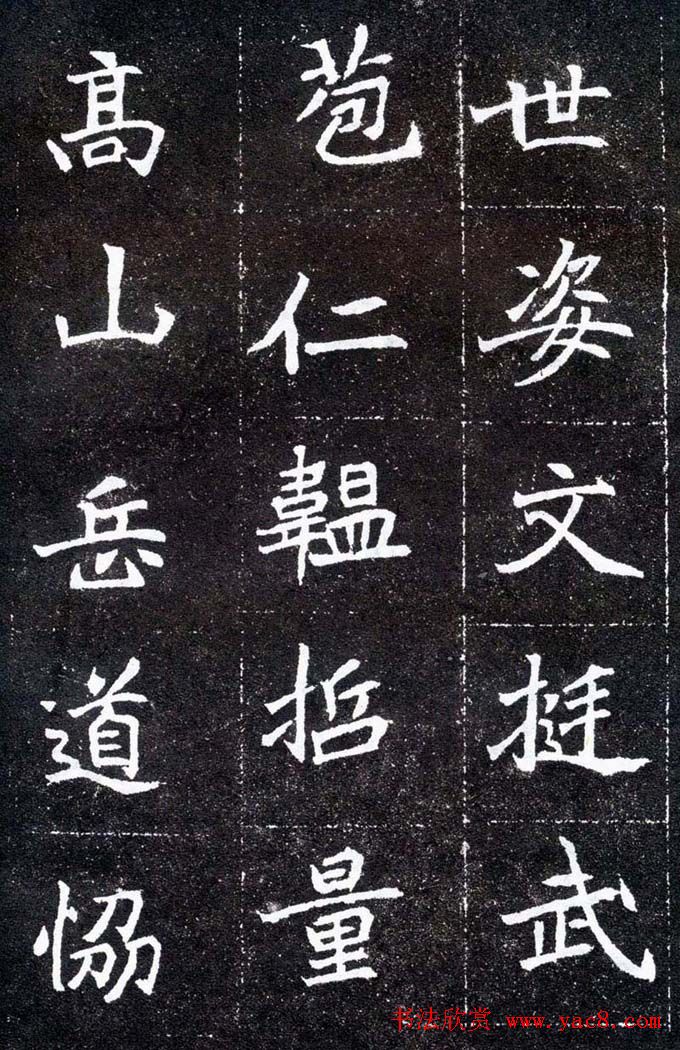 世姿文挺武
苞仁韞哲量
高山岳道協
书法欣赏 www.yac8.com